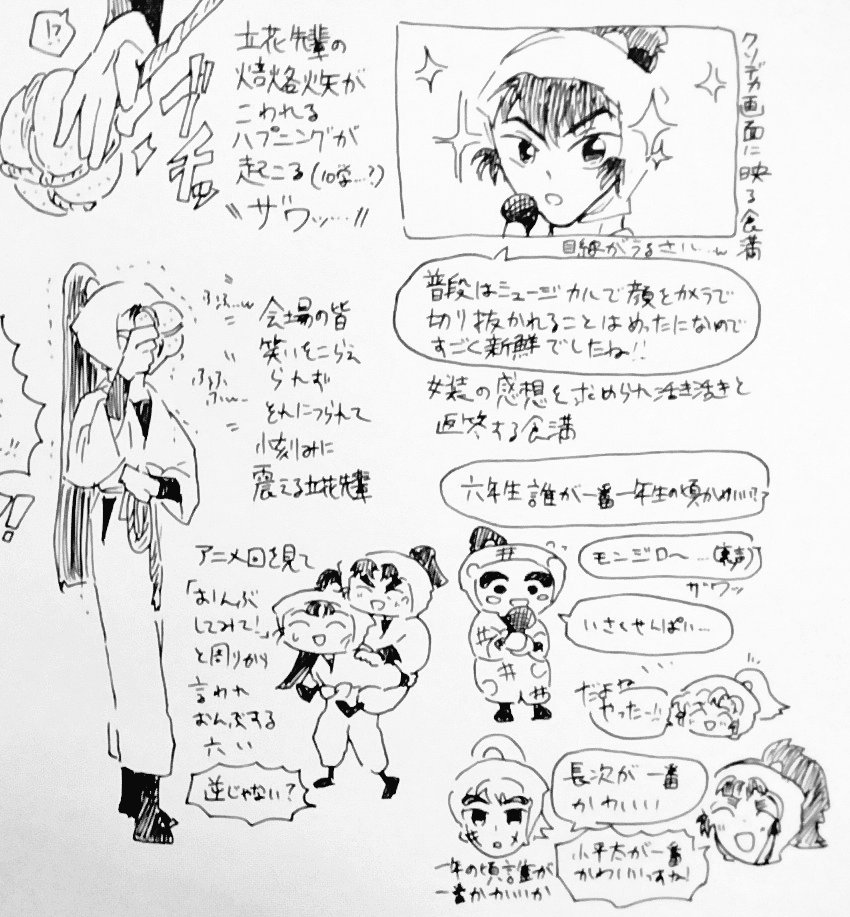 !?
立花先輩の
焙烙火矢が
こわれる
ハプニングが
起こる(10学…?)
"ザワッ…"
クソデカ画面に映る食満
目線がうるさい…w
普段はミュージカルで顔をカメラで
切り抜かれることはめったにないので
すごく新鮮でしたね!!
女装の感想を求められ活き活きと
返答する食満
ふふ…w
ふふふふw…
会場の皆
笑いをこらえ
られず
それにつられて
小刻みに
震える立花先輩
六年生誰が一番一年生の頃かわいい??
モンジロ〜…(裏声)
ザワッ
いさくせんぱい…
だよね
やったー!!
アニメ回を見て
「おんぶ
してみて!」
と周りから
言われ
おんぶする
六い
逆じゃない?
長次が一番
かわいい
小平太が一番
かわいいっすね!
一年の頃誰が
一番かわいいか